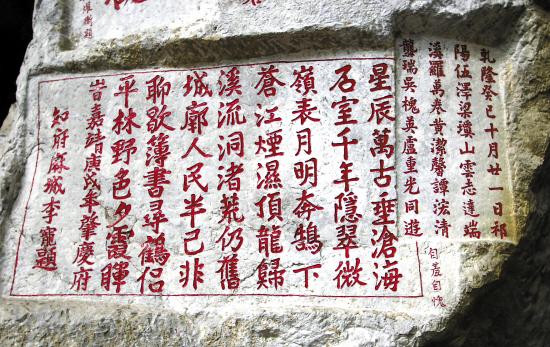 乾隆癸巳十月廿一日祁
陽伍澤梁瓊山雲志達端
溪羅萬卷黃潔馨譚浤清
龔瑞吳槐英盧重光同遊
星辰萬古垂滄海
石室千年隱翠微
嶺表月明奔鵠下
蒼江煙濕頂龍歸
溪流洞渚荒仍舊
城廓人民半已非
聊歇簿書尋鶴侶
平林野色夕霞暉
嘉靖庚戌年肇慶府
知府麻城李寵題